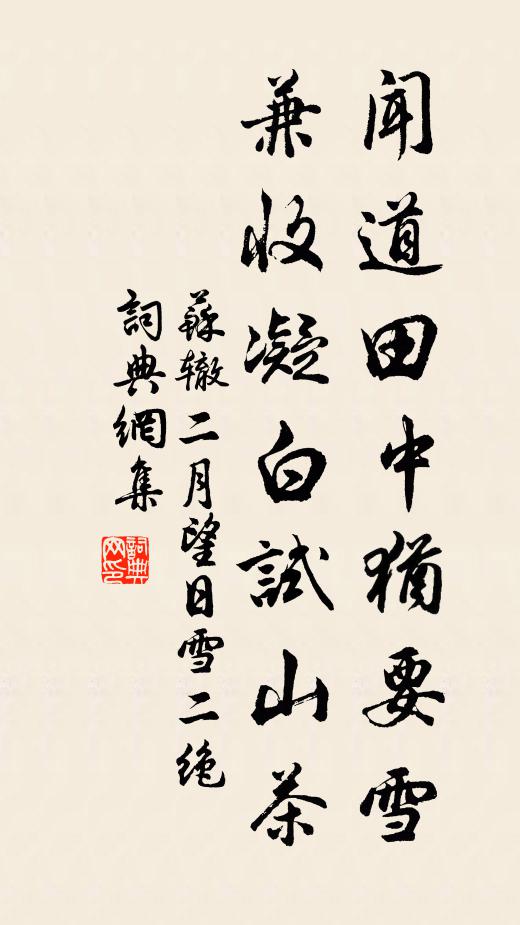 聞道田中猶要雪
兼收凝白試山茶
蘇辙二月望日雪二绝
詞典網集
詞典网印